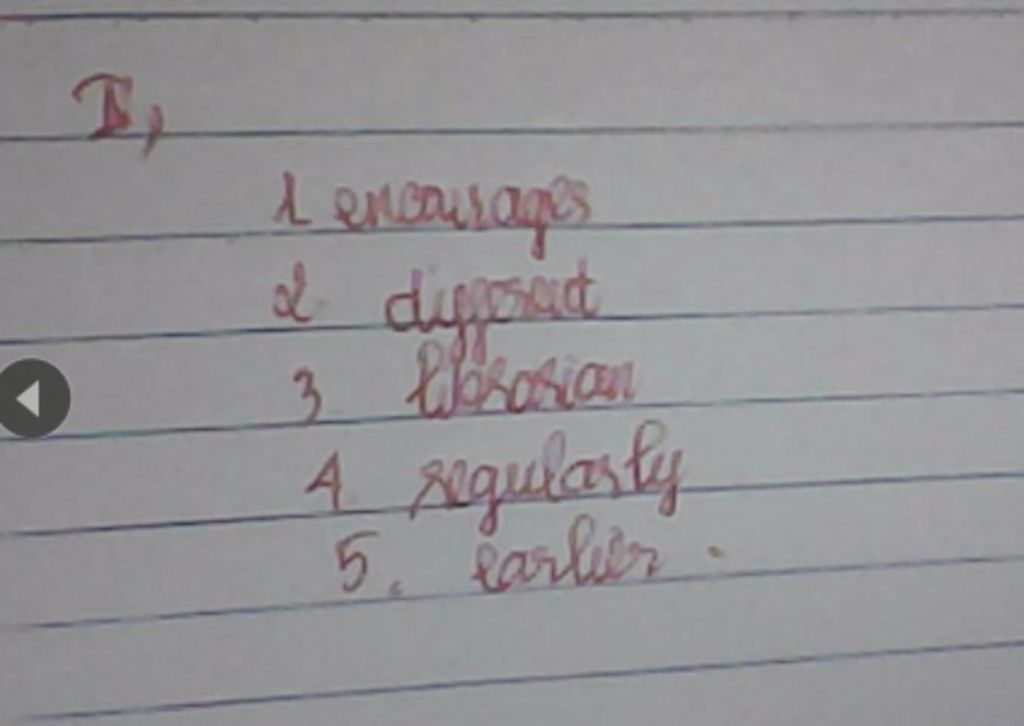 I,
1 encourages
2 different
3 librarian
4. regularly
5. earlier.